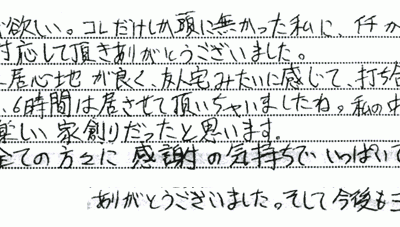 が欲しい。コレだけしか頭に無かった私に、イチか
対応して頂きありがとうございました。
居心地が良く、友人宅みたいに感じて、打ち合
、6時間は居させて頂いちゃいましたね。私の中
楽しい家創りだったと思います。
全ての方々に感謝の気持ちでいっぱいで
ありがとうございました。そして今後も